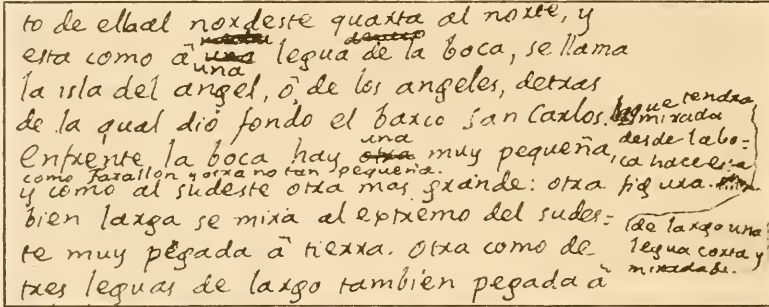 to de ella al nordeste quarta al norte, y
esta como â una legua de la boca, se llama
la isla del angel, ô de los angeles, detras
de la qual dió fondo el barco San Carlos.
Enfrente la boca hay una muy pequeña,
como farallon y otra no tan pequeña.
y como al sudeste otra mas grande: otra
bien larga se mira al extremo del sudes=
te muy pegada â tierra. Otra como de
tres leguas de largo tambien pegada â
que tendra
mirada
desde la bo=
ca hace esa
figura.
de largo una
legua corta y
mirada de